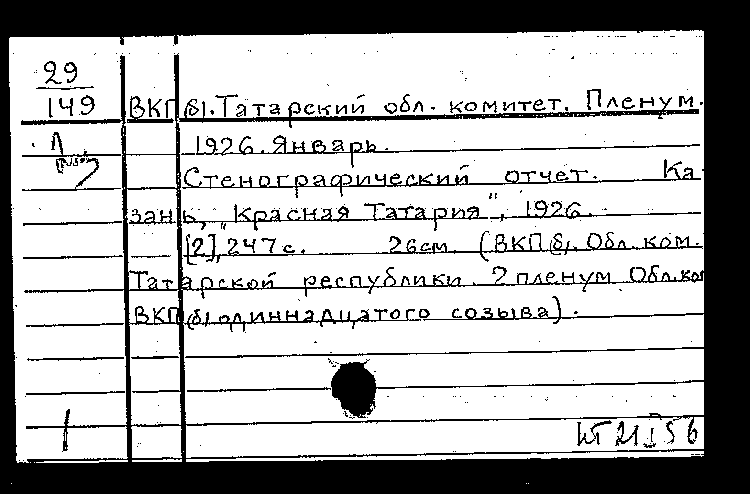 29
149
ВКП(б). Татарский обл. комитет. Пленум.
1926. Январь.
Стенографический отчет. Ка-
зань, "Красная Татария", 1926.
[2], 247 с. 26 см. (ВКП(б). Обл. ком.
Татарской республики. 2 пленум Обл. ко
ВКП(б) одиннадцатого созыва).